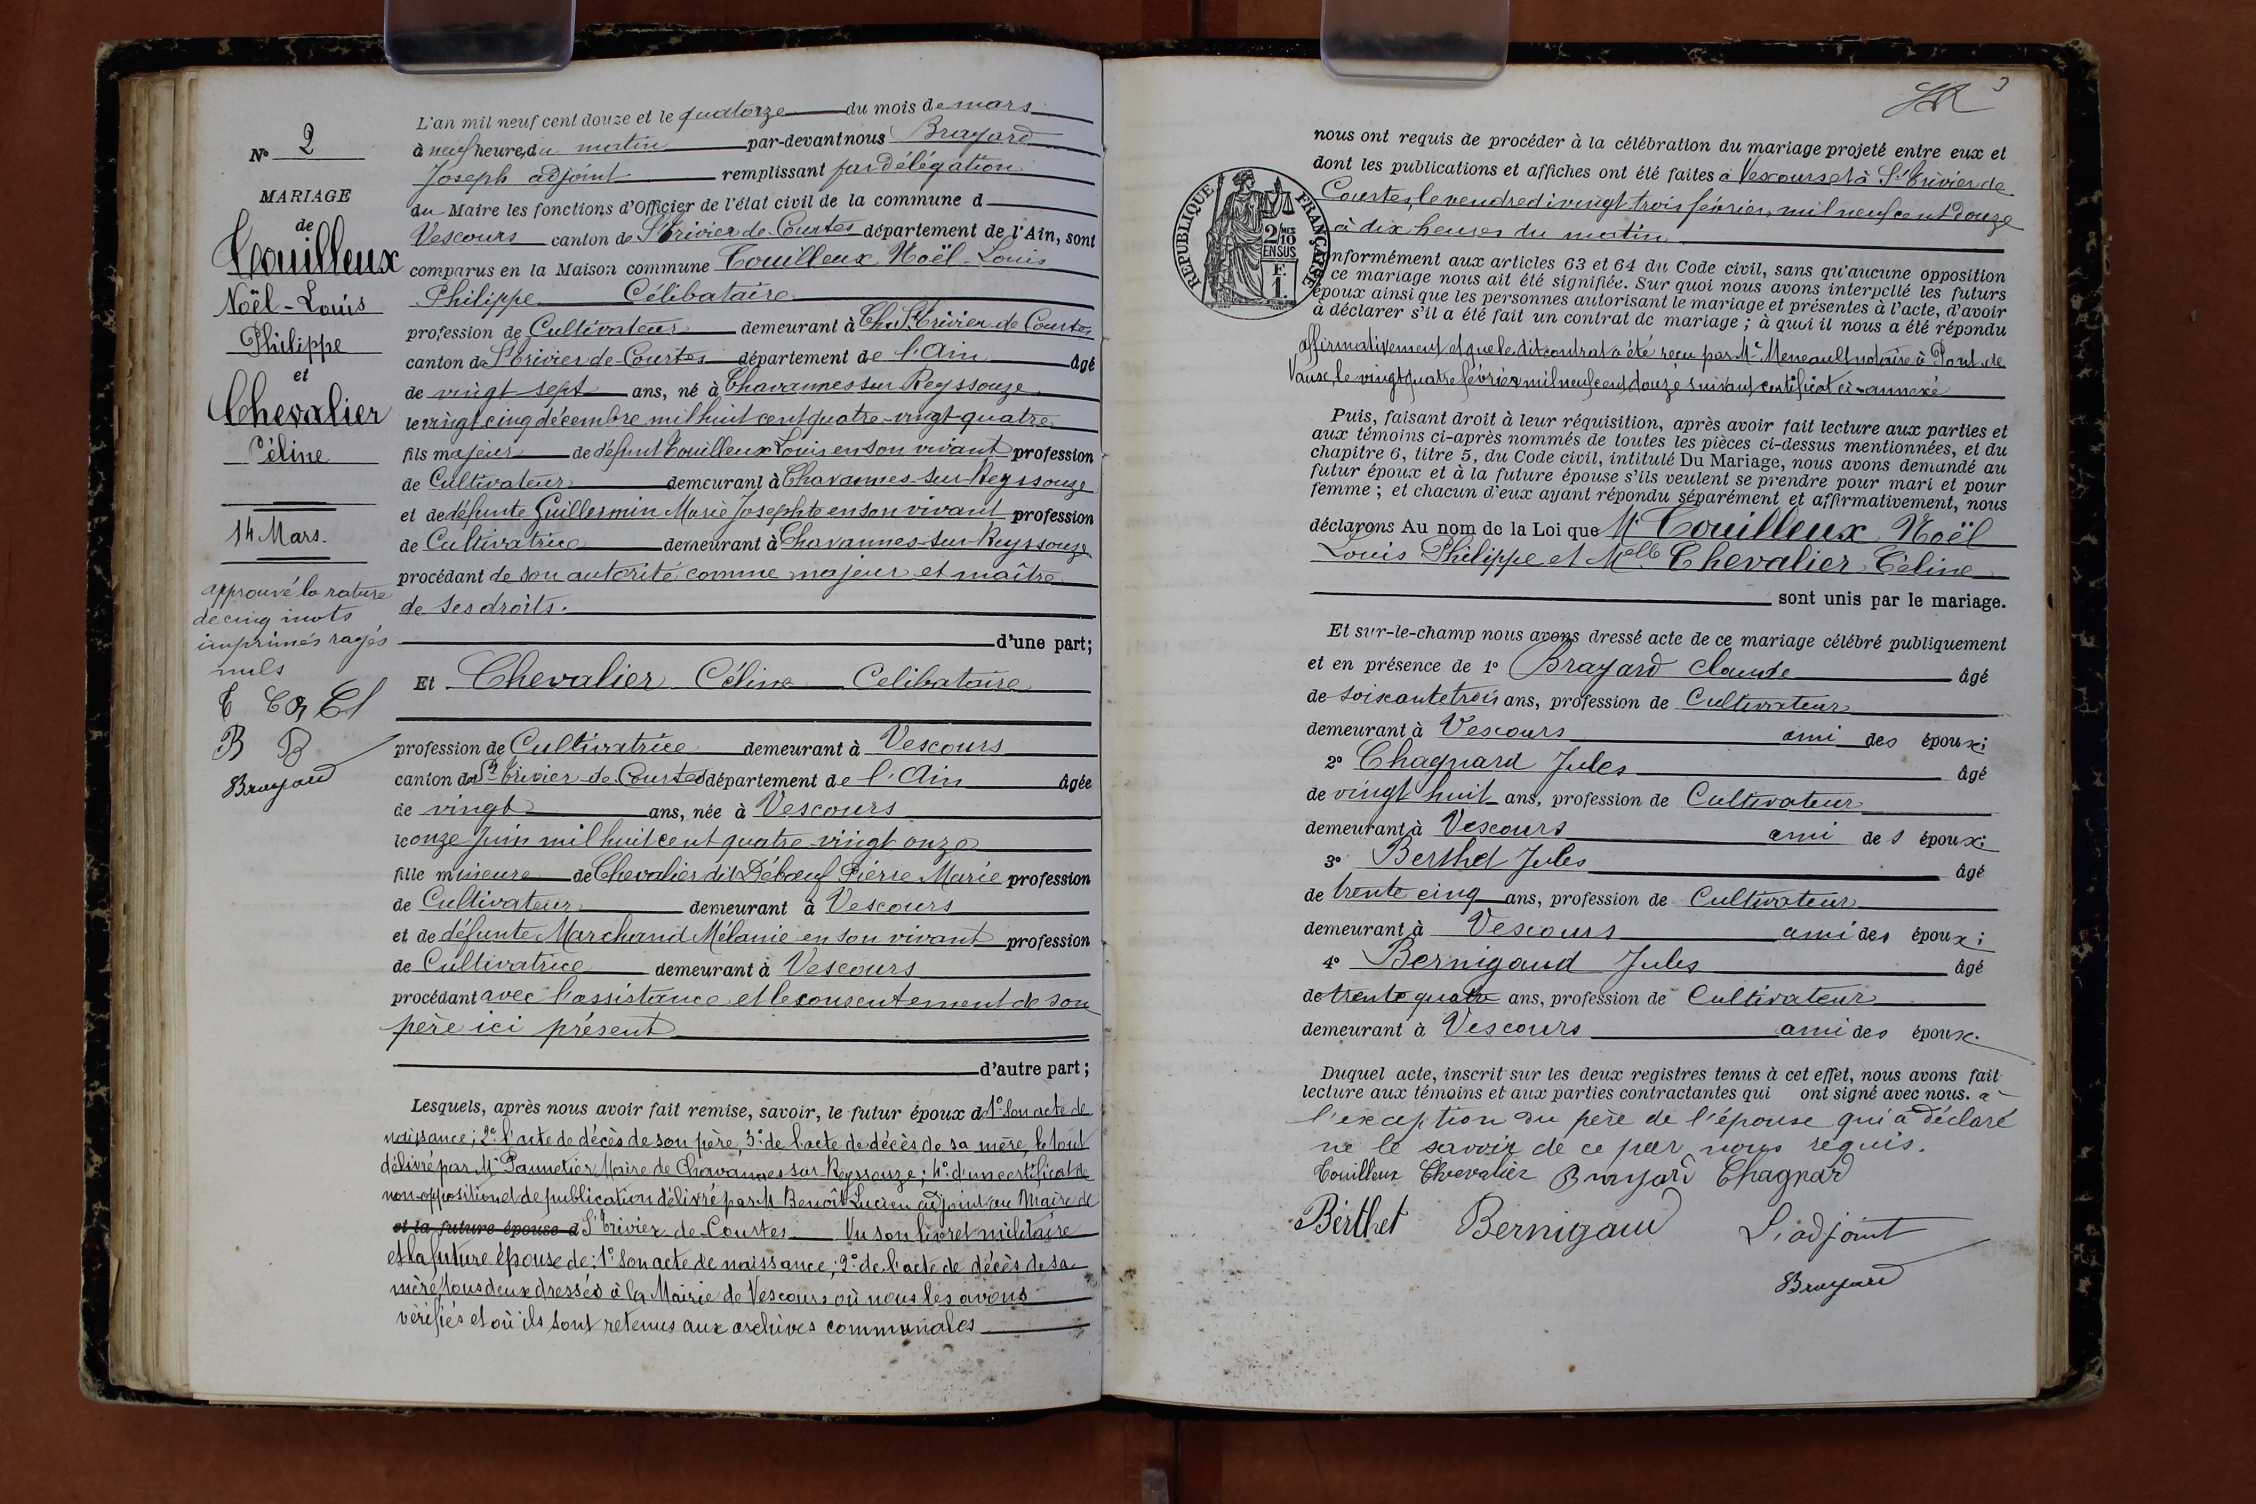 N° 2
MARIAGE
de
Touilleux
Noël-Louis
Philippe
et
Chevalier
Céline
14 Mars.
approuvé la rature
de cinq mots
imprimés rayés
nuls
Brayard
L'an mil neuf cent douze et le quatorze du mois de mars
à neuf heures du matin par-devant nous Brayard
Joseph adjoint remplissant par délégation
du Maire les fonctions d'Officier de l'état civil de la commune d
Vescours canton de St Trivier de Courtes département de l'Ain, sont
comparus en la Maison commune Touilleux Noël-Louis
Philippe Célibataire
profession de Cultivateur demeurant à St Trivier de Courtes
canton de St Trivier de Courtes département de l'Ain âgé
de vingt sept ans, né à Chavannes sur Reyssouze
le vingt cinq décembre mil huit cent quatre-vingt-quatre
fils majeur de défunt Touilleux Louis en son vivant profession
de Cultivateur demeurant à Chavannes-sur-Reyssouze
et de défunte Guillermin Marie Josephte en son vivant profession
de Cultivatrice demeurant à Chavannes-sur-Reyssouze
procédant de son autorité comme majeur et maître
de ses droits.
d'une part;
Et Chevalier Céline Celibataire
profession de Cultivatrice demeurant à Vescours
canton de St Trivier de Courtes département de l'Ain âgée
de vingt ans, née à Vescours
le onze Juin mil huit cent quatre-vingt onze
fille mineure de Chevalier dit Débœuf Pierre Marie profession
de Cultivateur demeurant à Vescours
et de défunte Marchand Mélanie en son vivant profession
de Cultivatrice demeurant à Vescours
procédant avec l'assistance et le consentement de son
père ici présent
d'autre part;
Lesquels, après nous avoir fait remise, savoir, le futur époux d 1° son acte de
naissance; 2° l'acte de décès de son père, 3° de l'acte de décès de sa mère, le tout
délivré par Mr Pannetier Maire de Chavannes sur Reyssouze; 4° d'un certificat de
non-opposition et de publication délivré par M Benoît Lucien adjoint au Maire de
et la future épouse d St Trivier de Courtes Vu son livret militaire
et la future épouse de: 1° son acte de naissance; 2° de l'acte de décès de sa
mère tous deux dressés à la Mairie de Vescours où nous les avons
vérifiés et où ils sont retenus aux archives communales
3
nous ont requis de procéder à la célébration du mariage projeté entre eux et
dont les publications et affiches ont été faites à Vescours et à St Trivier de
Courtes, le vendredi vingt trois février, mil neuf cent douze
à dix heures du matin
RÉPUBLIQUE FRANÇAISE
2/10 EN SUS
F. 1.
nformément aux articles 63 et 64 du Code civil, sans qu'aucune opposition
ce mariage nous ait été signifiée. Sur quoi nous avons interpellé les futurs
époux ainsi que les personnes autorisant le mariage et présentes à l'acte, d'avoir
à déclarer s'il a été fait un contrat de mariage; à quoi il nous a été répondu
affirmativement et que le dit contrat a été reçu par Me Meneault notaire à Pont-de
Vaux, le vingt quatre février mil neuf cent douze suivant certificat ci-annexé
Puis, faisant droit à leur réquisition, après avoir fait lecture aux parties et
aux témoins ci-après nommés de toutes les pièces ci-dessus mentionnées, et du
chapitre 6, titre 5, du Code civil, intitulé Du Mariage, nous avons demandé au
futur époux et à la future épouse s'ils veulent se prendre pour mari et pour
femme; et chacun d'eux ayant répondu séparément et affirmativement, nous
déclarons Au nom de la Loi que Mr Touilleux Noël
Louis Philippe et Melle Chevalier Céline
sont unis par le mariage.
Et sur-le-champ nous avons dressé acte de ce mariage célébré publiquement
et en présence de 1° Brayard Claude âgé
de soixante trois ans, profession de Cultivateur
demeurant à Vescours ami des époux;
2° Chagnard Jules âgé
de vingt huit ans, profession de Cultivateur
demeurant à Vescours ami des époux;
3° Berthet Jules âgé
de trente cinq ans, profession de Cultivateur
demeurant à Vescours ami des époux;
4° Bernigaud Jules âgé
de trente quatre ans, profession de Cultivateur
demeurant à Vescours ami des époux.
Duquel acte, inscrit sur les deux registres tenus à cet effet, nous avons fait
lecture aux témoins et aux parties contractantes qui ont signé avec nous. à
l'exception du père de l'épouse qui a déclaré
ne le savoir de ce par nous requis.
Touilleux Chevalier Brayard Chagnard
Berthet Bernigaud L'adjoint
Brayard